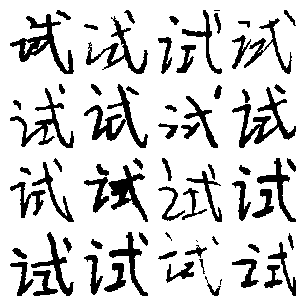 试试试试
试试试试
试试试试
试试试试